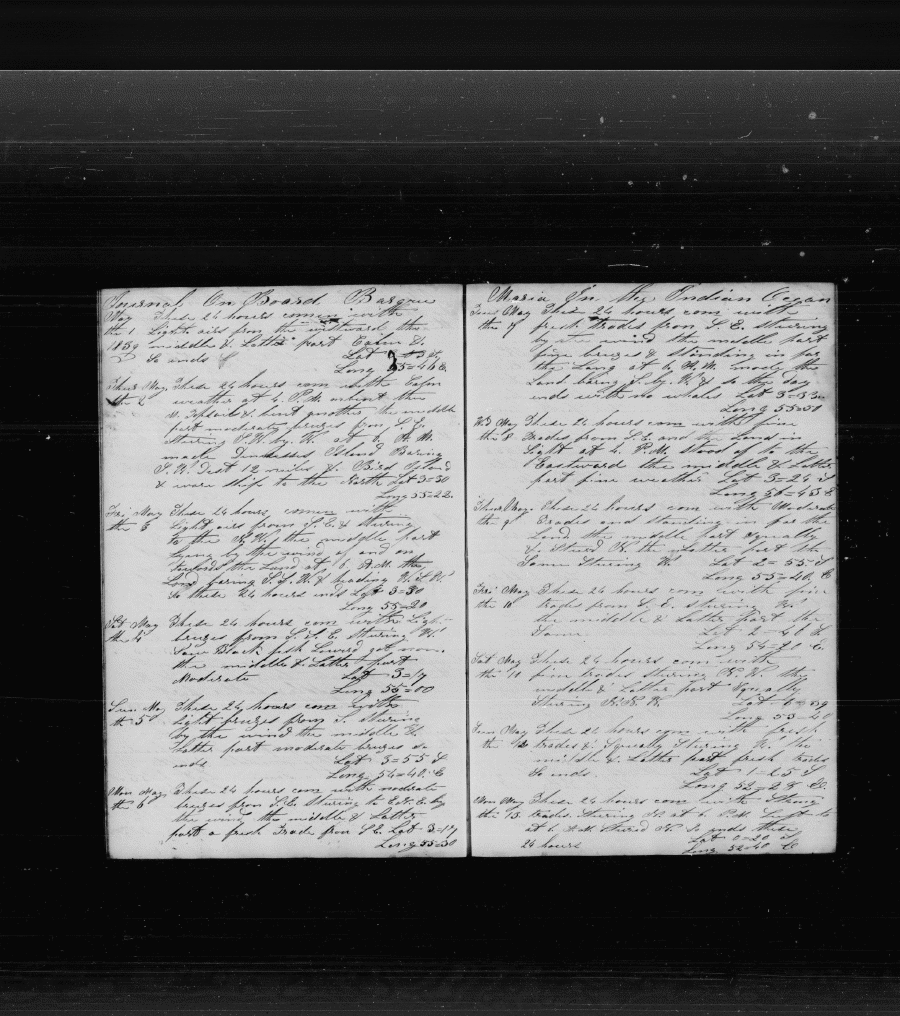 Journal On Board Barque
May These 24 hours comen with
the 1 Light airs from the westward the
1859 middle & Latter part Calm D.
So ends Lat
Long 55=46 E.
Thur May These 24 hours com with Calm
the 2 weather at 4. P.M. the
& bent another the middle
part moderate bruzes from S. E.
sturing S.W. by W. at 6. A. M.
made Island Baring
S. W. Dist 12 miles & Bird Island
& ware ship to the North Lat 3=30
Long 55=22.
Fri May These 24 hours comen with
the 3 Light airs from S. E. & sturing
to the N. W. the middle part
by the wind of and on
the Land at 6. A. M. the
Land barring S. & heading
So these 24 hours ends Lat 3=30
Long 55=20
Sat May These 24 hours com with Ligh-
the 4 bruzes from S. S. E. Sturing W.
Saw Black fish Lowerd got non.
the middle & Latter part
Moderate Lat 3=17
Long 55=00
Sun May These 24 hours com with
the 5 Light bruzes from S. Sturing
by the wind the middle &
Latter part moderate bruzes so
ends Lat 3=55 S
Long 54=40. E
Mon May These 24 hours com with moderate
the 6 bruzes from S. E. Sturing to E. N. E. by
the wind the middle & Latter
part a fresh Trade from S E. Lat 3=17
Long 55=30
Maria In the Indian Ocean
Tues May These 24 hours com with
the 7 fresh trades from S. E. sturing
by the wind the middle part
fine bruzes & standing in for
the Land at 6. A. M. made the
Land baring S. by. W. & so the day
ends with no whales Lat 3=3
Long 55=50
Wd May These 24 hours com with fine
the 8 trades from S. E and the Land in
Sight at 4. P. M. Stood of to the
Eastward the middle & Latter
part fine weather Lat 3=24 S
Long 56=45 E
Thurs May These 24 hours com with Moderate
the 9 Trades and standing in for the
Land the middle part Squally
& Sturd N. the Latter part the
Same Sturing W. Lat 2=55 S
Long 55=40. E
Fri May These 24 hours com with fine
the 10 trades from S. E. sturing W.
the middle & Latter part the
Same. Lat 2=40 S
Long 54=20 E.
Sat May These 24 hours com with
the 11 fine trades sturing N. W. the
middle & Latter part Squally
Sturing
Long 53=40
Sun May These 24 hours com with fresh
the 12 trades & Squally Sturing N. the
middle & Latter part fresh trades
So ends. Lat 1=25 S
Long 52=28 E.
Mon May These 24 hours com with Strong
the 13. trades. Sturing N at 6. P.M. Luft to
at 6. A.M. Sturd N So ends these
24 hours Lat 0=20 S
Long 52=40 E